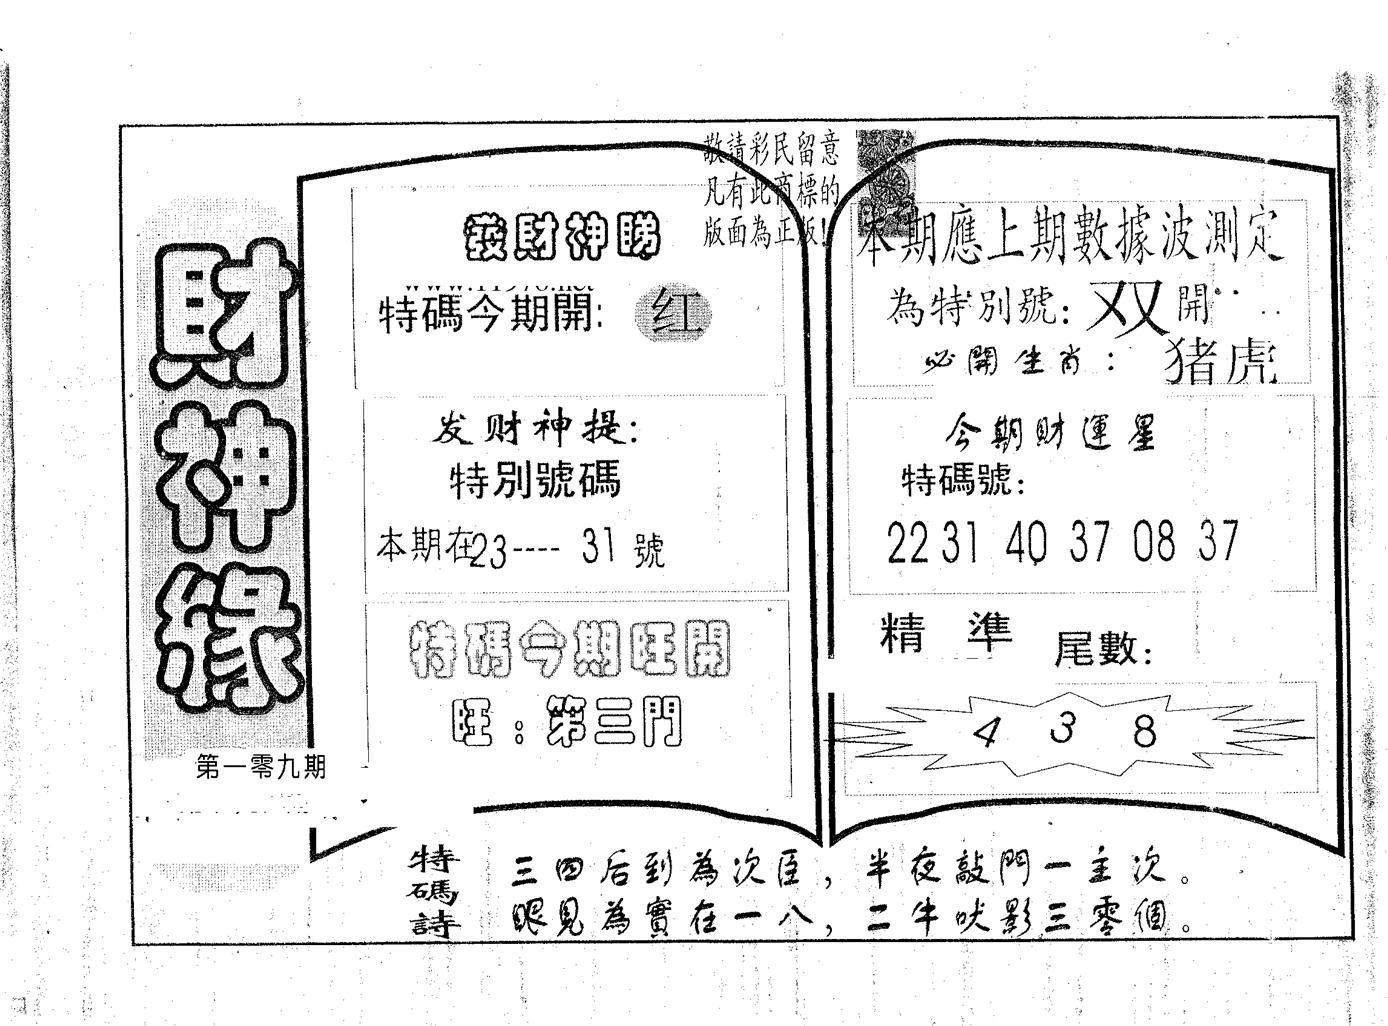 財神緣
第一零九期
敬請彩民留意
凡有此商標的
版面為正版!
發財神賜
www.11978.net
特碼今期開: 红
发财神提:
特別號碼
本期在23---- 31 號
特碼今期旺開
旺:第三門
本期應上期數據波測定
為特別號: 双 開
必開生肖: 猪虎
今期財運星
特碼號:
22 31 40 37 08 37
精 準 尾數:
4 3 8
特碼詩
三四后到為次臣,半夜敲門一主次。
眼見為實在一八,二牛吠影三零個。